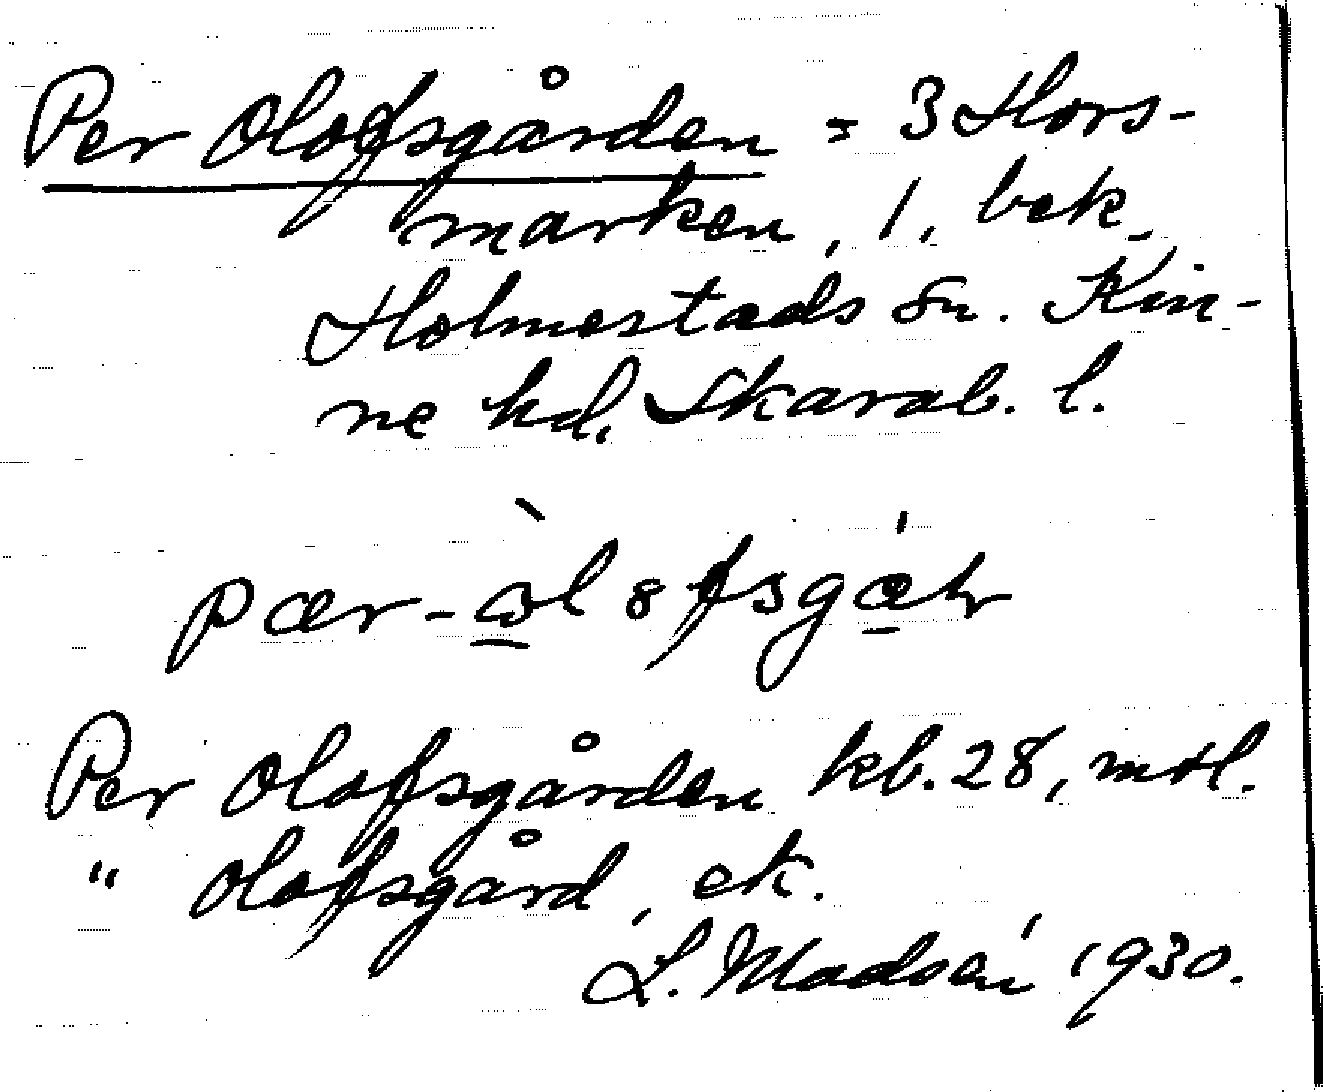 Per Olofsgården = 3 Hors-
marken, 1, bek.
Holmestads sn. Kin-
ne hd, Skarab. l.
Per Olofsgården kb. 28, mtl.
" Olofsgård, ek.
L. Madsén 1930.